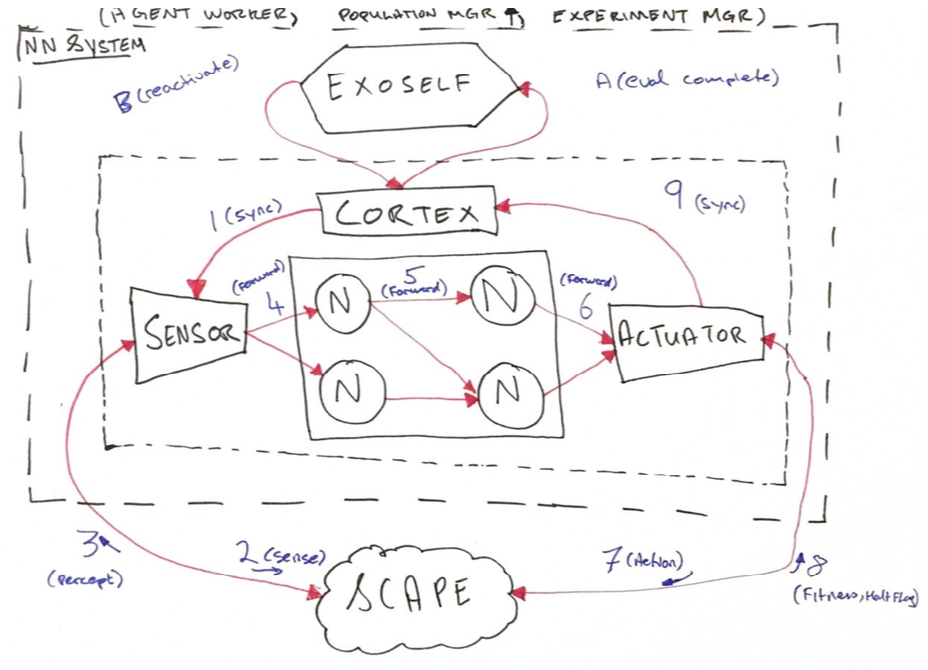 (AGENT WORKER, POPULATION MGR ↑, EXPERIMENT MGR)
NN SYSTEM
B (reactivate)
EXOSELF
A (eval complete)
1 (sync)
CORTEX
9 (sync)
(forward)
4
5
(forward)
(forward)
6
N
N
SENSOR
ACTUATOR
N
N
3
(percept)
2 (sense)
SCAPE
7 (Action)
8
(Fitness, Halt Flag)